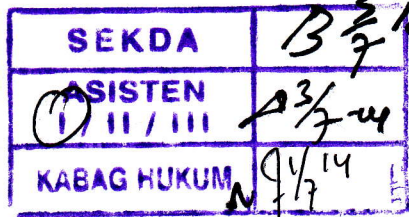 SEKDA 3/7
ASISTEN
I / II / III 3/7-14
KABAG HUKUM 1/7 14